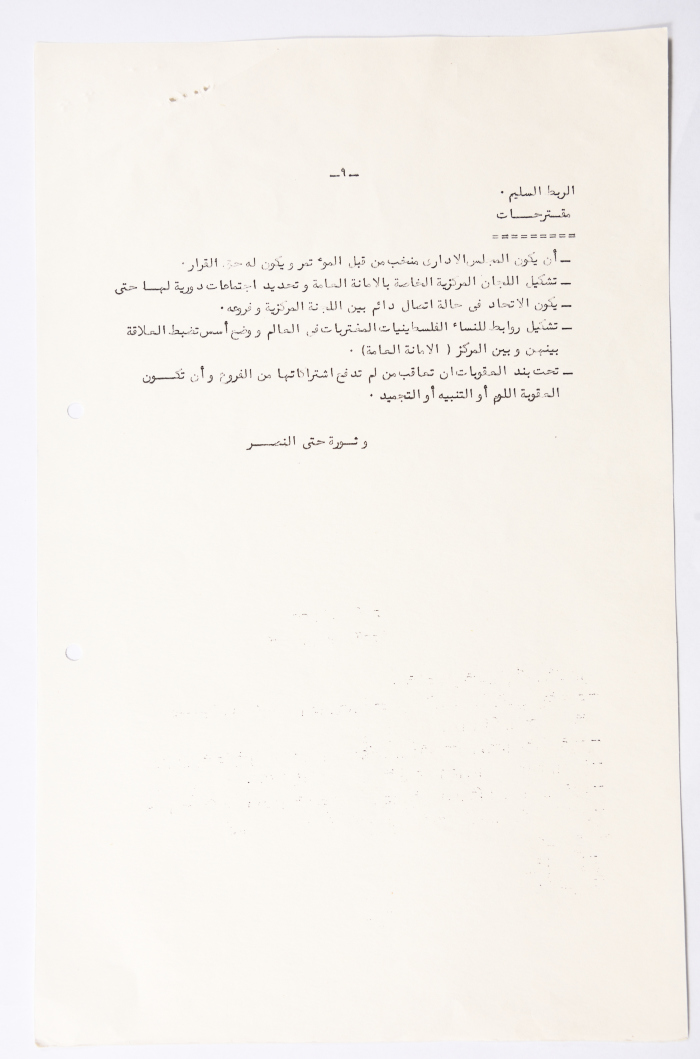 ــ٩ــ
الربط السليم ٠
مقترحــات
=========
ــ أن يكون المجلس الادارى منتخب من قبل الموٴ تمر و يكون له حق القرار ٠
ــ تشكيل اللجان المركزية الخاصة بالامانة العامة و تحديد اجتماعات دورية لهـا حتى
ــ يكون الاتحاد فى حالة اتصال دائم بين اللجنة المركزية و فروعه٠
ــ تشكيل روابط للنساء الفلسطينيات المغتربات فى العالم و وضع أسس تضبط العلاقة
بينهن و بين المركز ( الامانة العامة) ٠
ــ تحت بند العقوبات ان تعاقب من لم تدفع اشتراكاتها من الفروع و أن تكــون
العقوبة اللوم أو التنبيه أو التجميد ٠
و ثـورة حتى النصــر